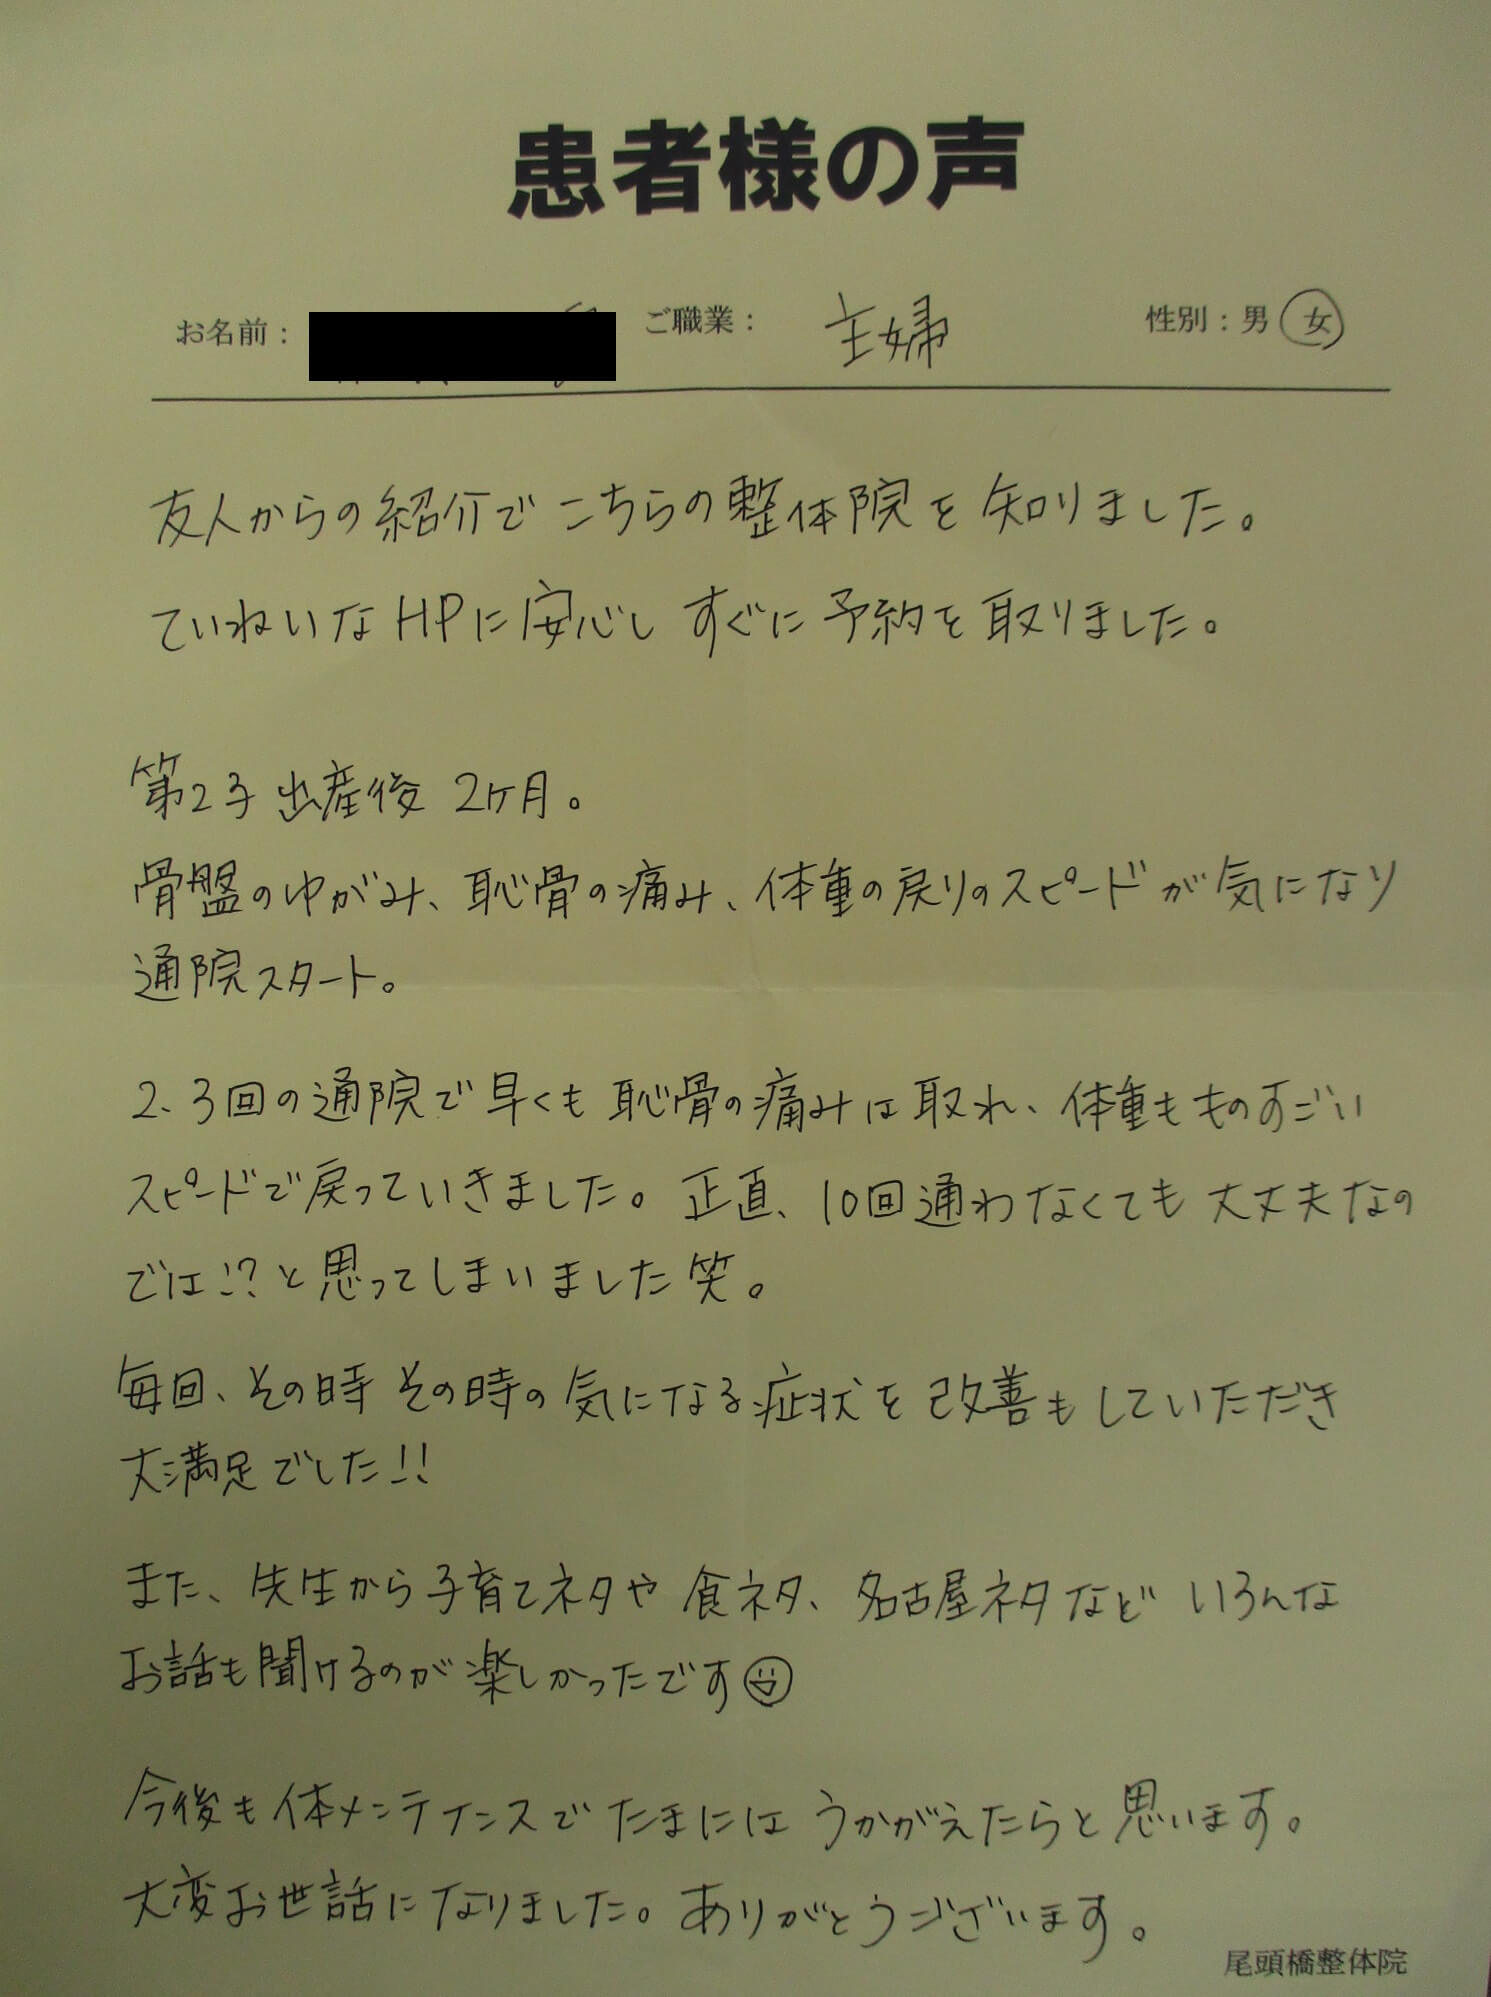 患者様の声
お名前: ご職業: 主婦 性別:男 女
友人からの紹介でこちらの整体院を知りました。
ていねいなHPに安心しすぐに予約を取りました。
第2子出産後2ヶ月。
骨盤のゆがみ、恥骨の痛み、体重の戻りのスピードが気になり
通院スタート。
2、3回の通院で早くも恥骨の痛みは取れ、体重もものすごい
スピードで戻っていきました。正直、10回通わなくても大丈夫なの
では!?と思ってしまいました笑。
毎回、その時その時の気になる症状を改善もしていただき
大満足でした!!
また、先生から子育てネタや食ネタ、名古屋ネタなどいろんな
お話も聞けるのが楽しかったです
今後も体メンテナンスでたまにはうかがえたらと思います。
大変お世話になりました。ありがとうございます。
尾頭橋整体院